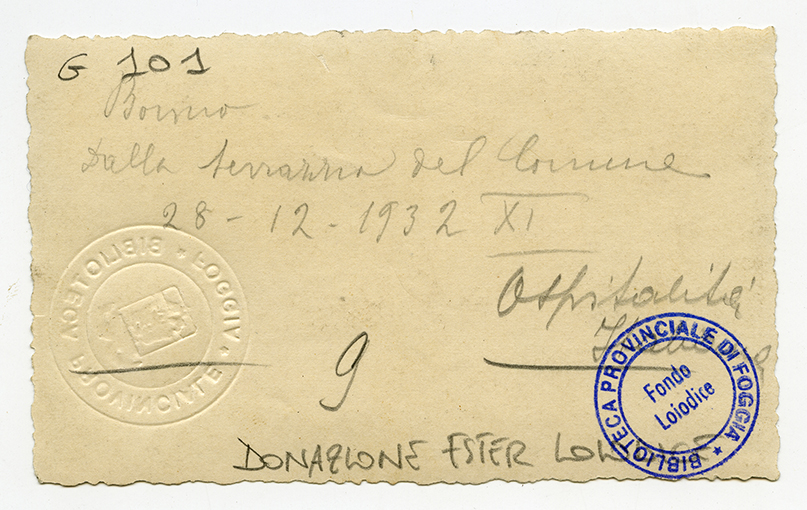 G 101
Dalla terrazza del Comune
28 - 12 - 1932 XI
Ospitalità
9
DONAZIONE ESTER LOIODICE
BIBLIOTECA PROVINCIALE DI FOGGIA *
Fondo
Loiodice
BIBLIOTECA PROVINCIALE * FOGGIA *